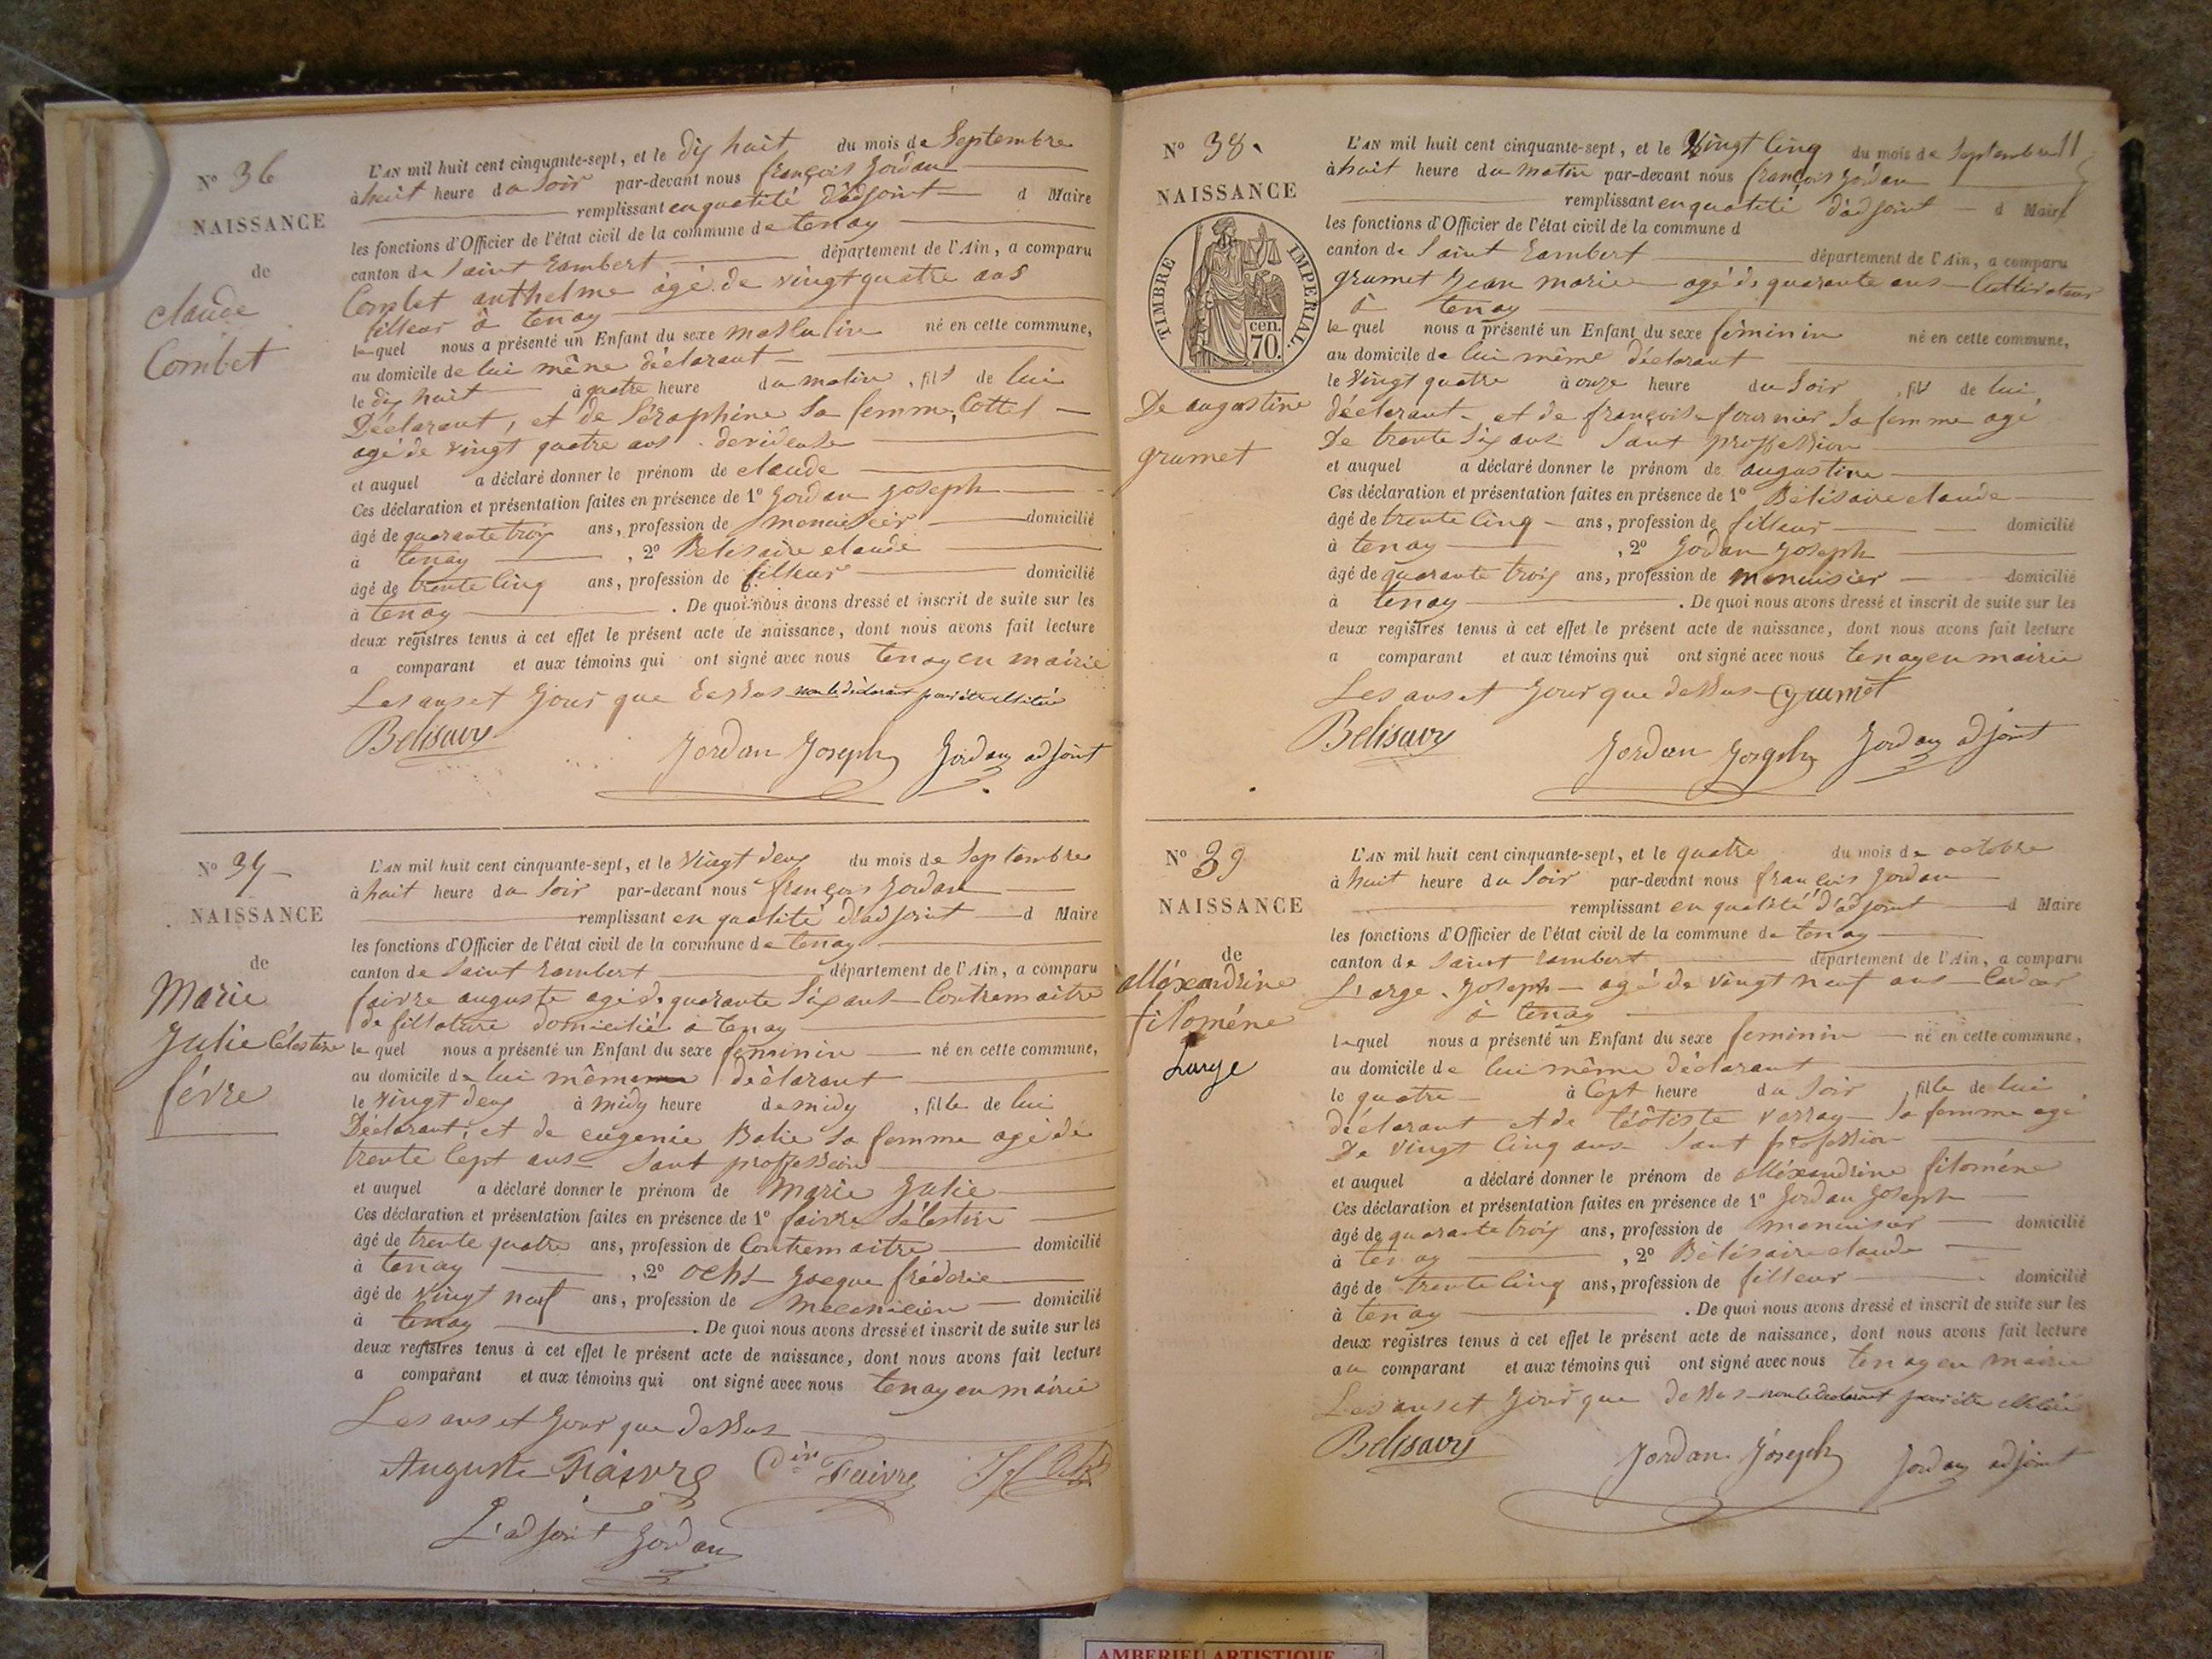 Nº 36
NAISSANCE
de
claude
Combet
L'AN mil huit cent cinquante-sept, et le dix huit du mois de Septembre
à huit heure du Soir par-devant nous françois Jordan
remplissant en qualité d'adjoint d Maire
les fonctions d'Officier de l'état civil de la commune de tenay
canton de Saint Rambert département de l'Ain, a comparu
Combet anthelme agé de vingt quatre ans
filleur à tenay
le quel nous a présenté un Enfant du sexe masculin né en cette commune,
au domicile de lui même déclarant
le dix huit à quatre heure du matin, fils de lui
Déclarant, et de Séraphine sa femme, Cottet
agé de vingt quatre ans devideuse
et auquel a déclaré donner le prénom de claude
Ces déclaration et présentation faites en présence de 1º Jordan Joseph
âgé de quarante troix ans, profession de menuisier domicilié
à tenay, 2º Belisaire claude
âgé de trente cinq ans, profession de filleur domicilié
à tenay. De quoi nous avons dressé et inscrit de suite sur les
deux registres tenus à cet effet le présent acte de naissance, dont nous avons fait lecture
a comparant et aux témoins qui ont signé avec nous tenay en mairie
Les ans et Jour que dessus non le déclarant pour être illitéré
Belisaire Jordan Joseph Jordan adjoint
Nº 37
NAISSANCE
de
Marie
Julie Célestine
févre
L'AN mil huit cent cinquante-sept, et le vingt deux du mois de Septembre
à huit heure du Soir par-devant nous françois Jordan
remplissant en qualité d'adjoint d Maire
les fonctions d'Officier de l'état civil de la commune de tenay
canton de Saint Rambert département de l'Ain, a comparu
faivre auguste agé de quarante Six ans Contremaitre
de fillature domicilié à tenay
le quel nous a présenté un Enfant du sexe féminin né en cette commune,
au domicile de lui même déclarant
le vingt deux à midy heure de midy, fille de lui
Déclarant, et de eugenie Balie sa femme agé de
trente Cept ans Sant proffession
et auquel a déclaré donner le prénom de Marie Julie
Ces déclaration et présentation faites en présence de 1º faivre Sélestin
âgé de trente quatre ans, profession de Contremaitre domicilié
à tenay, 2º ochs Jacque fréderic
âgé de vingt neuf ans, profession de mecanicien domicilié
à tenay. De quoi nous avons dressé et inscrit de suite sur les
deux registres tenus à cet effet le présent acte de naissance, dont nous avons fait lecture
a comparant et aux témoins qui ont signé avec nous tenay en mairie
Les ans et Jour que dessus
Auguste Faivre Cin Faivre
L'adjoint Jordan
11
Nº 38
NAISSANCE
TIMBRE IMPERIAL
70 cen.
De augustine
grumet
L'AN mil huit cent cinquante-sept, et le vingt cinq du mois de Septembre
à huit heure du matin par-devant nous françois Jordan
remplissant en qualité d'adjoint d Maire
les fonctions d'Officier de l'état civil de la commune d
canton de Saint Rambert département de l'Ain, a comparu
grumet Jean marie agé de quarante ans Cultivateur
à tenay
le quel nous a présenté un Enfant du sexe féminin né en cette commune,
au domicile de lui même déclarant
le vingt quatre à onze heure du Soir, fils de lui
déclarant et de françoise fournier sa femme agé
De trente Six ans Sant proffession
et auquel a déclaré donner le prénom de augustine
Ces déclaration et présentation faites en présence de 1º Bélisaire claude
âgé de trente cinq ans, profession de filleur domicilié
à tenay, 2º Jordan Joseph
âgé de quarante troix ans, profession de menuisier domicilié
à tenay. De quoi nous avons dressé et inscrit de suite sur les
deux registres tenus à cet effet le présent acte de naissance, dont nous avons fait lecture
a comparant et aux témoins qui ont signé avec nous tenay en mairie
Les ans et Jour que dessus Grumet
Belisaire Jordan Joseph Jordan adjoint
Nº 39
NAISSANCE
de
alléxandrine
filoméne
Large
L'AN mil huit cent cinquante-sept, et le quatre du mois de octobre
à huit heure du Soir par-devant nous françois Jordan
remplissant en qualité d'adjoint d Maire
les fonctions d'Officier de l'état civil de la commune de tenay
canton de Saint Rambert département de l'Ain, a comparu
L'arge Joseph agé de vingt neuf ans Cardeur
à tenay
le quel nous a présenté un Enfant du sexe feminin né en cette commune,
au domicile de lui même déclarant
le quatre à Cept heure du Soir, fille de lui
déclarant et de téotiste varray sa femme agé
De vingt Cinq ans Sant profession
et auquel a déclaré donner le prénom de alléxandrine filoméne
Ces déclaration et présentation faites en présence de 1º Jordan Joseph
âgé de quarante troix ans, profession de menuisier domicilié
à tenay, 2º Bélisaire claude
âgé de trente cinq ans, profession de filleur domicilié
à tenay. De quoi nous avons dressé et inscrit de suite sur les
deux registres tenus à cet effet le présent acte de naissance, dont nous avons fait lecture
au comparant et aux témoins qui ont signé avec nous tenay en mairie
Les ans et Jour que dessus non le déclarant pour être illitéré
Belisaire Jordan Joseph Jordan adjoint
AMBERIEU ARTISTIQUE